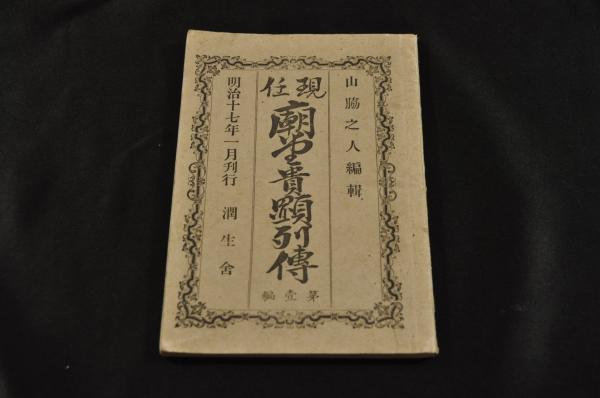 山脇之人編輯
現任
廟堂貴顕列傳
第壹編
明治十七年一月刋行 潤生舍